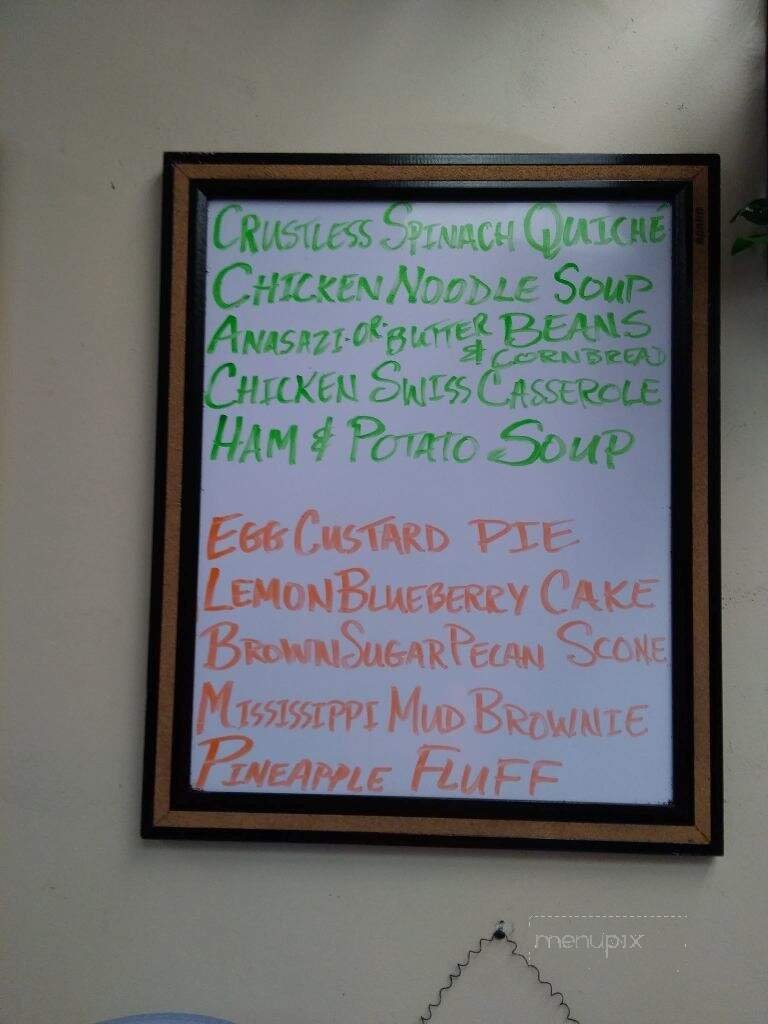 CRUSTLESS SPINACH QUICHÉ
CHICKEN NOODLE SOUP
ANASAZI-OR-BUTTER BEANS
& CORNBREAD
CHICKEN SWISS CASSEROLE
HAM & POTATO SOUP
EGG CUSTARD PIE
LEMON BLUEBERRY CAKE
BROWN SUGAR PECAN SCONE
MISSISSIPPI MUD BROWNIE
PINEAPPLE FLUFF
menupix